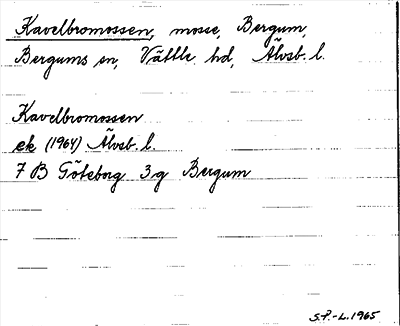 Kavelbromossen, mosse, Bergum,
Bergums sn, Vättle hd, Älvsb. l.
Kavelbromossen
ek (1964) Älvsb. l.
7 B Göteborg 3g Bergum
S.P.-L. 1965